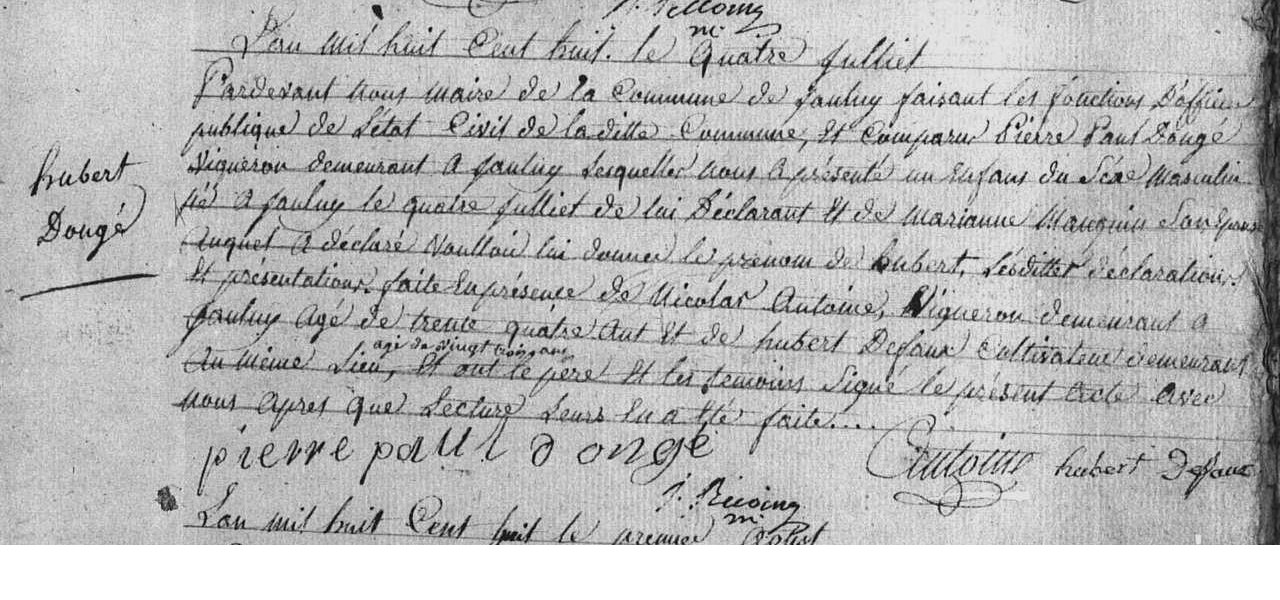 m.
L'an mil huit Cent huit. le Quatre Julliet
Pardevant nous maire de la Commune de faulny faisant les fonctions D'officier
publique de L'état Civil de laditte Commune, Et Comparu Pierre Paul Dongé
Vigneron demeurant a faulny Lesquelles nous a présenté un Enfans du Séxe Masculin
né a faulny le quatre Julliet de lui Déclarant Et de Marianne Manguin Son Epouse
Auquel a déclaré Voulloir lui donner le prénom de hubert, Lesdittes déclarations
Et présentations. faite En présence de Nicolas Antoine, Vigneron demeurant a
faulny Agé de trente quatre Ant Et de hubert Defaux Cultivateur demeurant
agé de vingt trois ans
Au même Lieu, Et ont le père Et les temoins Signé le présent Acte avec
nous apres que Lecture Leurs En a Eté faite....
hubert
Dongé
pierre paul dongé
Antoine hubert Defaux
m.
L'an mil huit Cent huit le premier